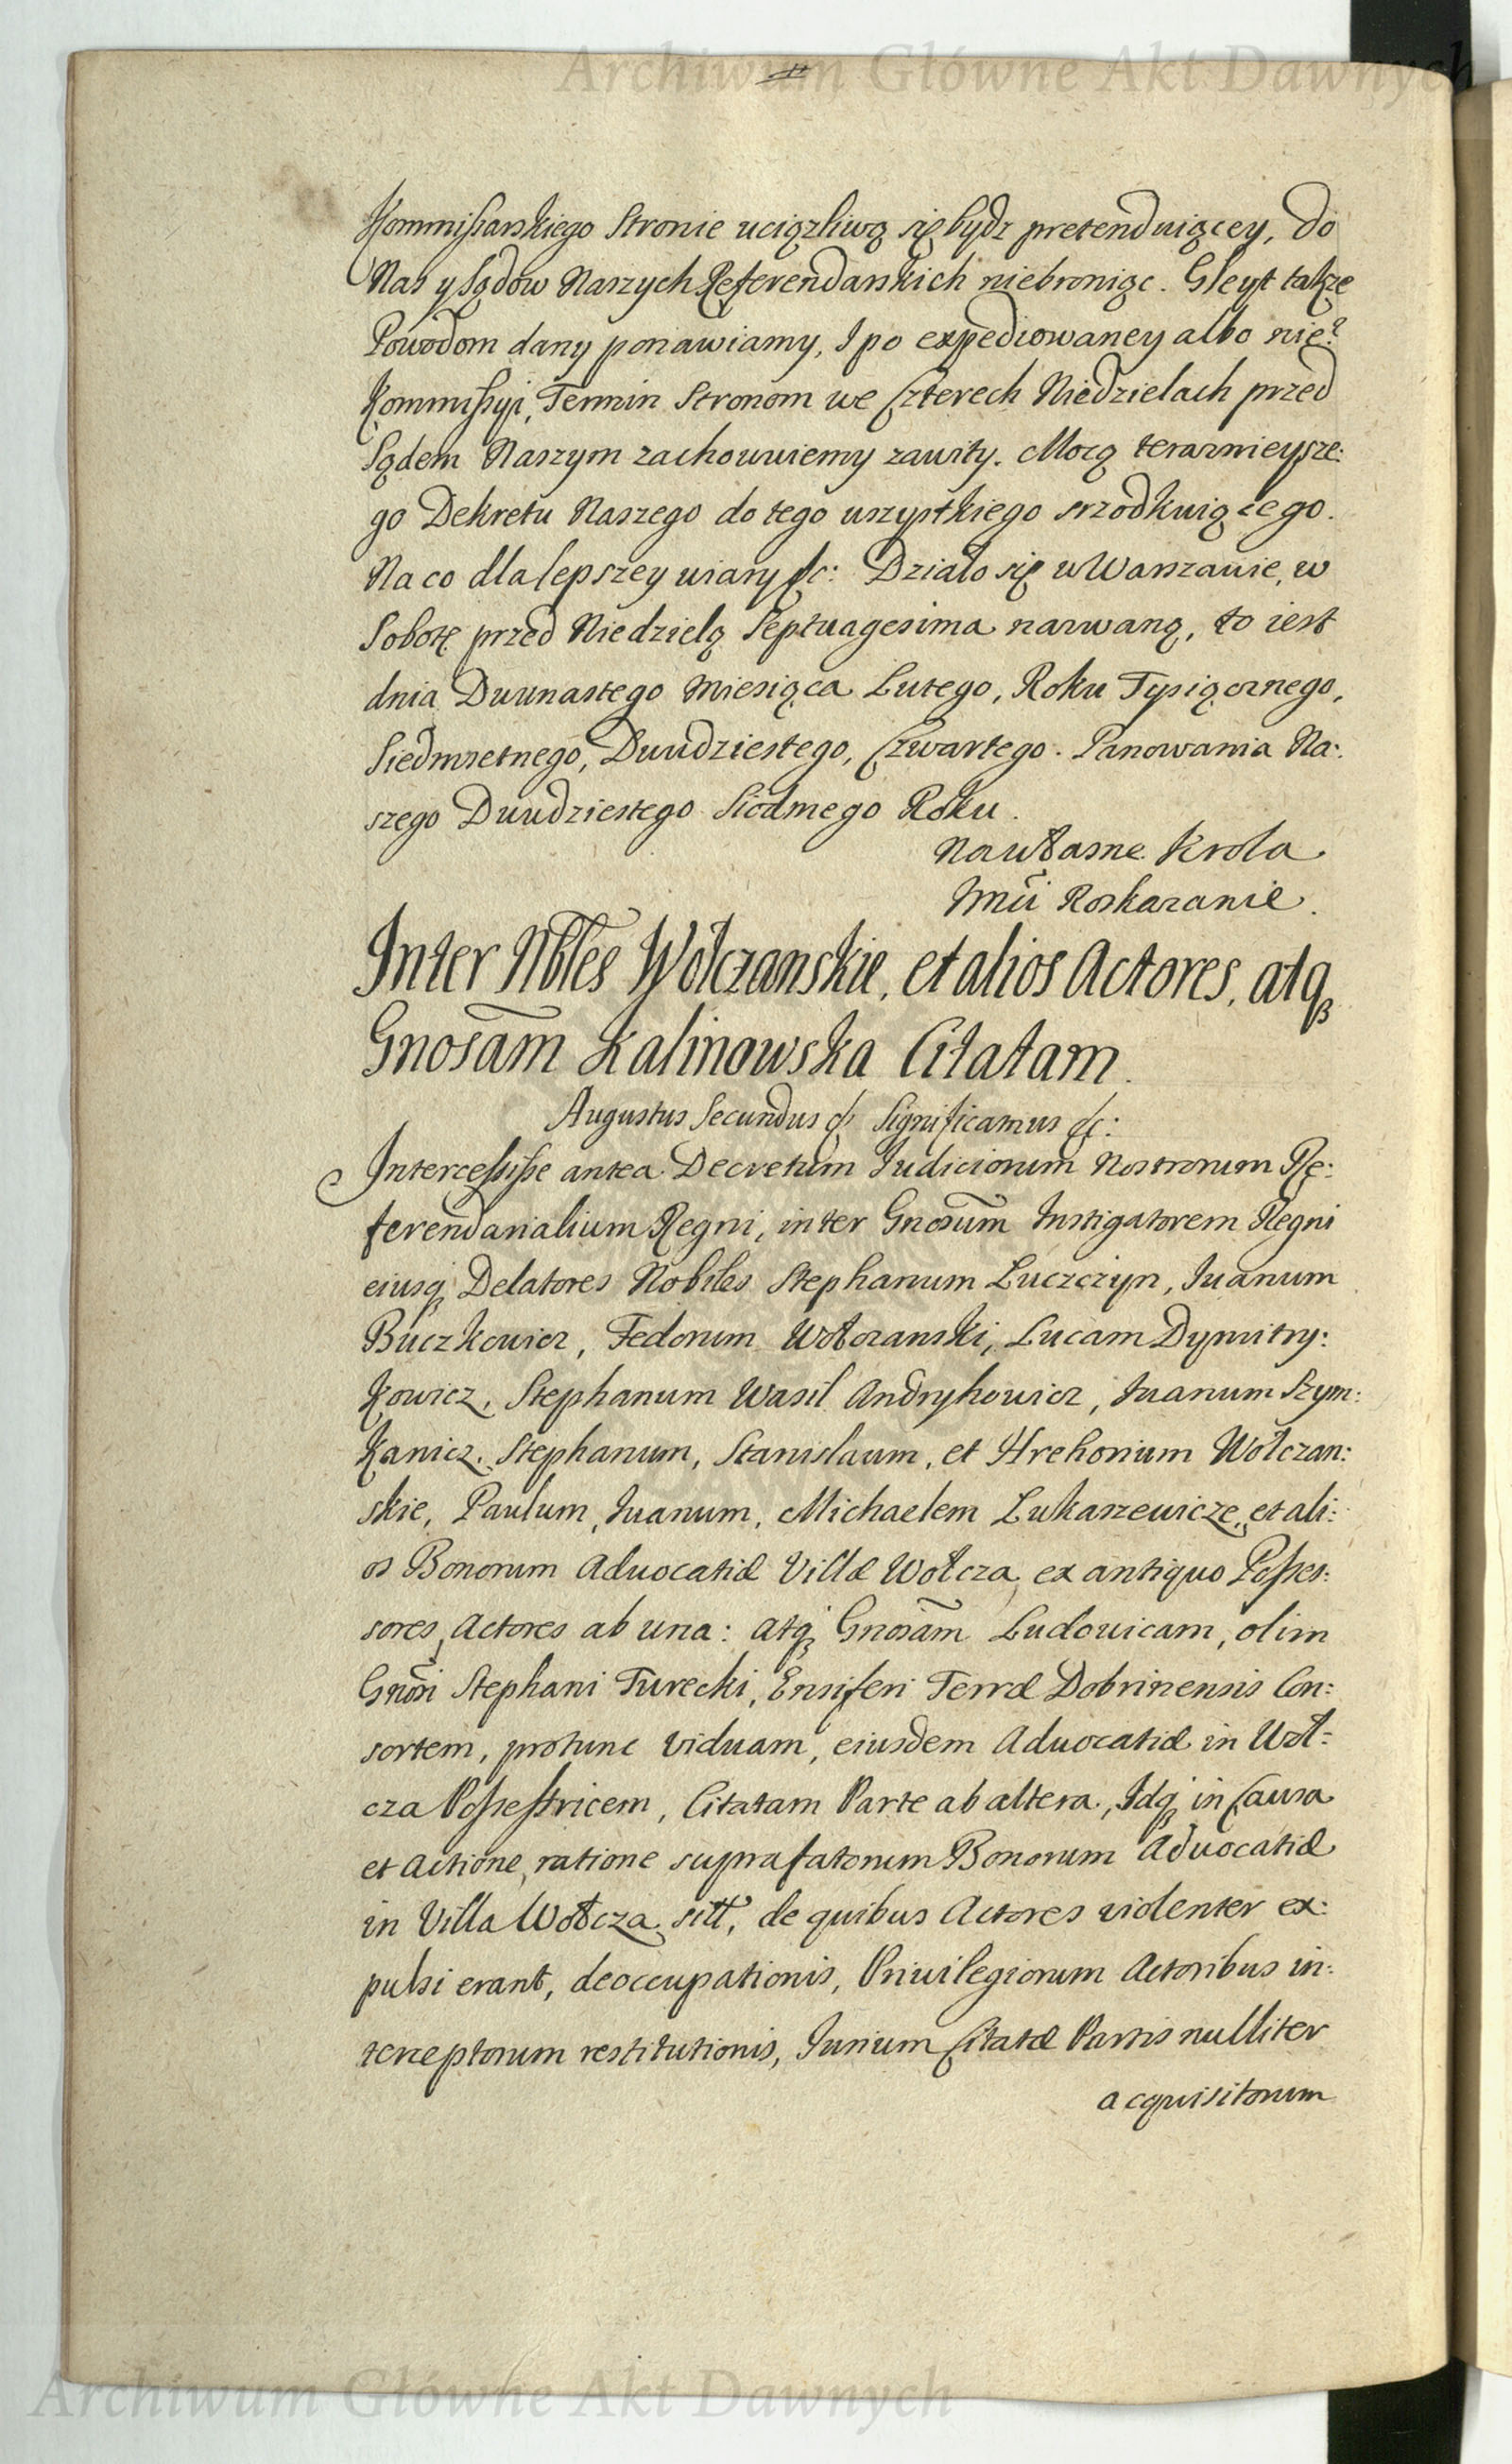 Archiwum Główne Akt Dawnych
Kommissarskiego Stronie uciąźliwą się bydz pretenduiącey, do
Nas y Sądow Naszych Referendarskich niebroniąc. Gleyt takze
Powodom dany ponawiamy, I po expediowaney albo nie?
Kommissyi, Termin Stronom we Czterech Niedzielach przed
Sądem Naszym zachowuiemy zawity. Mocą teraznieysze:
go Dekretu Naszego do tego wszystkiego srzodkuiącego.
Na co dla lepszey wiary &c: Działo się w Warszawie, w
Sobotę przed Niedzielą Septuagesima nazwaną, to iest
dnia Dwunastego Miesiąca Lutego, Roku Tysiącznego,
Siedmsetnego, Dwudziestego, Czwartego. Panowania Na:
szego Dwudziestego Siodmego Roku.
Na własne Krola
Jmći Roskazanie.
Inter Nbles Wołczanskie, et alios Actores, atq
Gnosam Kalinowska Citatam.
Augustus Secundus & Significamus &c:
Intercessisse antea Decretum Iudiciorum Nostrorum Re:
ferendarialium Regni, inter Gnosum Instigatorem Regni
eiusq Delatores Nobiles Stephanum Luczczyn, Iuanum
Buczkowicz, Fedorum Wołczanski, Lucam Dymitry:
kowicz, Stephanum Wasil Andryhowicz, Iuanum Szym:
kanicz, Stephanum, Stanislaum, et Hrehorium Wołczan:
skie, Paulum, Iuanum, Michaelem Lukaszewicze, et ali:
os Bonorum Aduocatiæ Villæ Wołcza, ex antiquo Posses:
sores, Actores ab una: atq Gnosam Ludouicam, olim
Gnosi Stephani Turecki, Ensiferi Terræ Dobrinensis Con:
sortem, pro tunc Viduam, eiusdem Aduocatiæ in Woł:
cza Possestricem, Citatam Parte ab altera, Idq in Causa
et Actione, ratione suprafatorum Bonorum Aduocatiæ
in Villa Wołcza sitt, de quibus Actores violenter ex:
pulsi erant, deoccupationis, Priuilegiorum Actoribus in:
terceptorum restitutionis, Iurium Citatæ Partis nulliter
acquisitorum
Archiwum Główne Akt Dawnych